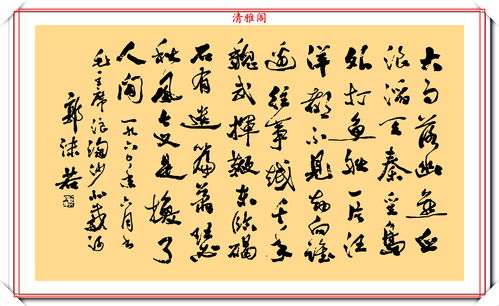 清雅阁
大雨落幽燕白
浪滔天秦皇島
外打魚船一片汪
洋都不見知向誰
邊往事越千年
魏武揮鞭東臨碣
石有遺篇蕭瑟
秋風今又是換了
人间 一九六〇年六月书
毛主席浪淘沙北戴河
郭沫若